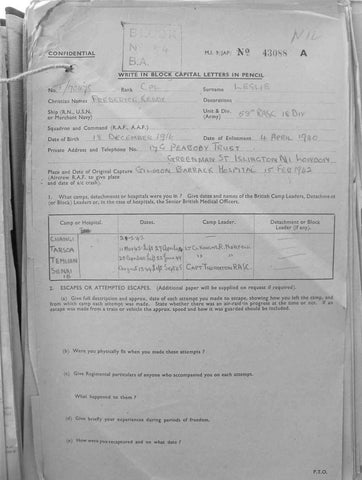 BLOCK
Nº 54
B.A.
NIL
CONFIDENTIAL
M.I. 9/JAP/ Nº 43088 A
WRITE IN BLOCK CAPITAL LETTERS IN PENCIL
No. Rank CPL LESLIE
Christian Names FREDERICK Decorations
Ship (R.N., U.S.N. or Merchant Navy) Unit & Div. (Army) 55TH RASC 18 DIV
Squadron and Command (R.A.F., A.A.F.)
Date of Birth 18 DECEMBER 1916 Date of Enlistment 4 APRIL 1940
Private Address and Telephone No. PEABODY TRUST
GREENMAN ST. ISLINGTON N1 LONDON
Place and Date of Original Capture BARRACK HOSPITAL 15 FEB 1942
(Aircrew R.A.F. to give place and date of a/c crash).
1. What camps, detachments or hospitals were you in? Give dates and names of the British Camp Leaders, Detachment (or Block) Leaders or, in the case of hospitals, the Senior British Medical Officers.
Camp or Hospital. Dates. Camp Leader. Detachment or Block Leader (if any).
CHANGI
TARSOA
TEMUAN
CAPT THORNTON RASC
2. ESCAPES OR ATTEMPTED ESCAPES. (Additional paper will be supplied on request if required)
(a) Give full description and approx. date of each attempt you made to escape, showing how you left the camp, and from which camp each attempt was made. State whether there was an air-raid in progress at the time or not. If an escape was made from a train or vehicle the approx. speed and how it was guarded should be included.
(b) Were you physically fit when you made these attempts ?
(c) Give Regimental particulars of anyone who accompanied you on each attempt.
What happened to them ?
(d) Give briefly your experiences during periods of freedom.
(e) How were you recaptured and on what date ?
P.T.O.